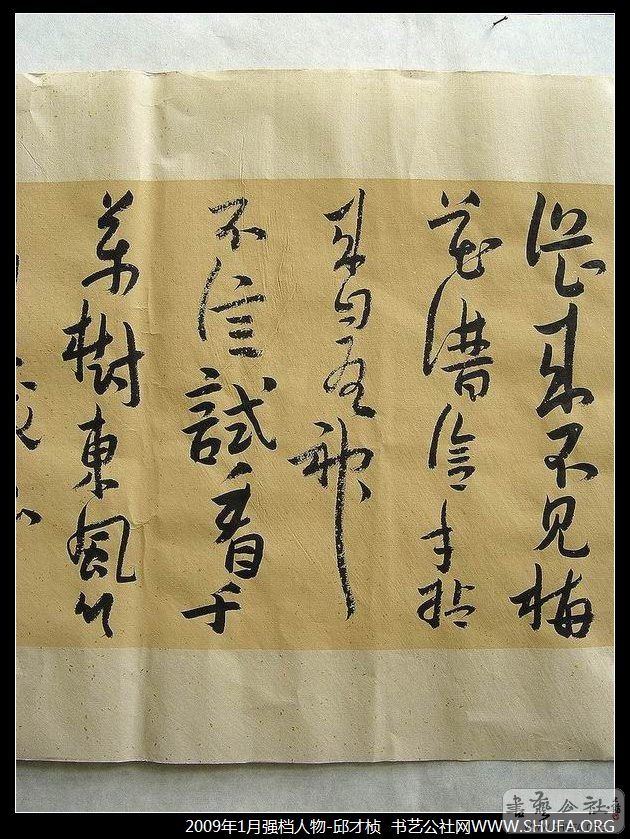 從來不見梅
花譜信手拈
來自有神
不信試看千
萬樹東風吹
書藝公社
2009年1月强档人物-邱才桢 书艺公社网WWW.SHUFA.ORG